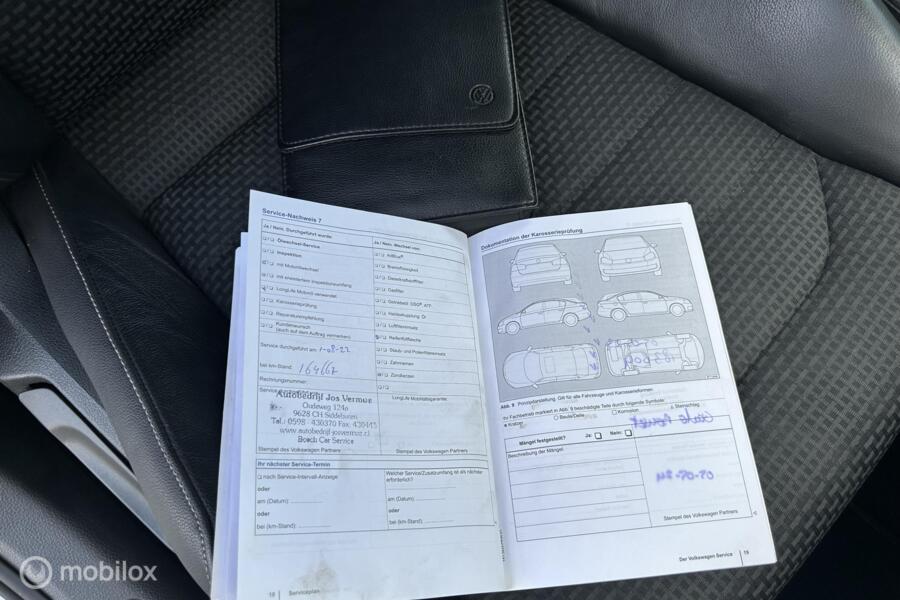 Service-Nachweis 7
Ja / Nein, Durchgeführt wurde:
Ölwechsel-Service
Inspektion
mit Motorölwechsel
mit erweitertem Inspektionsumfang
LongLife Motoröl verwendet
Karosserieprüfung
Reparaturempfehlung
Kundenwunsch
(auch auf dem Auftrag vermerken)
Service durchgeführt am: 1-08-22
bei km-Stand: 164167
Rechtungsnummer:
Autobedrijf Jos Vermue
Oudeweg 124a
9628 CH Siddeburen
Tel.: 0598 - 430370 Fax: 430443
www.autobedrijf-josvermue.nl
Bosch Car Service
Stempel des Volkswagen Partners
Ja / Nein, Wechsel von:
AdBlue®
Bremsflüssigkeit
Dieselkraftstofffilter
Gasfilter
Getriebeöl DSG®, ATF
Haldexkupplung Öl
Luftfiltereinsatz
Reifenfüllflasche
Staub- und Pollenfiltereinsatz
Zahnriemen
Zündkerzen
LongLife Mobilitätsgarantie:
Stempel des Volkswagen Partners
Ihr nächster Service-Termin
nach Service-Intervall-Anzeige
oder
am (Datum):
oder
bei (km-Stand):
Welcher Service/Zusatzumfang ist als nächster
erforderlich?
am (Datum):
oder
bei (km-Stand):
18 Serviceplan
Dokumentation der Karosserieprüfung
Abb. 9 Prinzipdarstellung: Gilt für alle Fahrzeuge und Karosserieformen.
Kratzer
Beule/Delle
Korrosion
Steinschlag
Mängel festgestellt? Ja: Nein:
Beschreibung der Mängel
Stempel des Volkswagen Partners
Der Volkswagen Service 19
mobilox